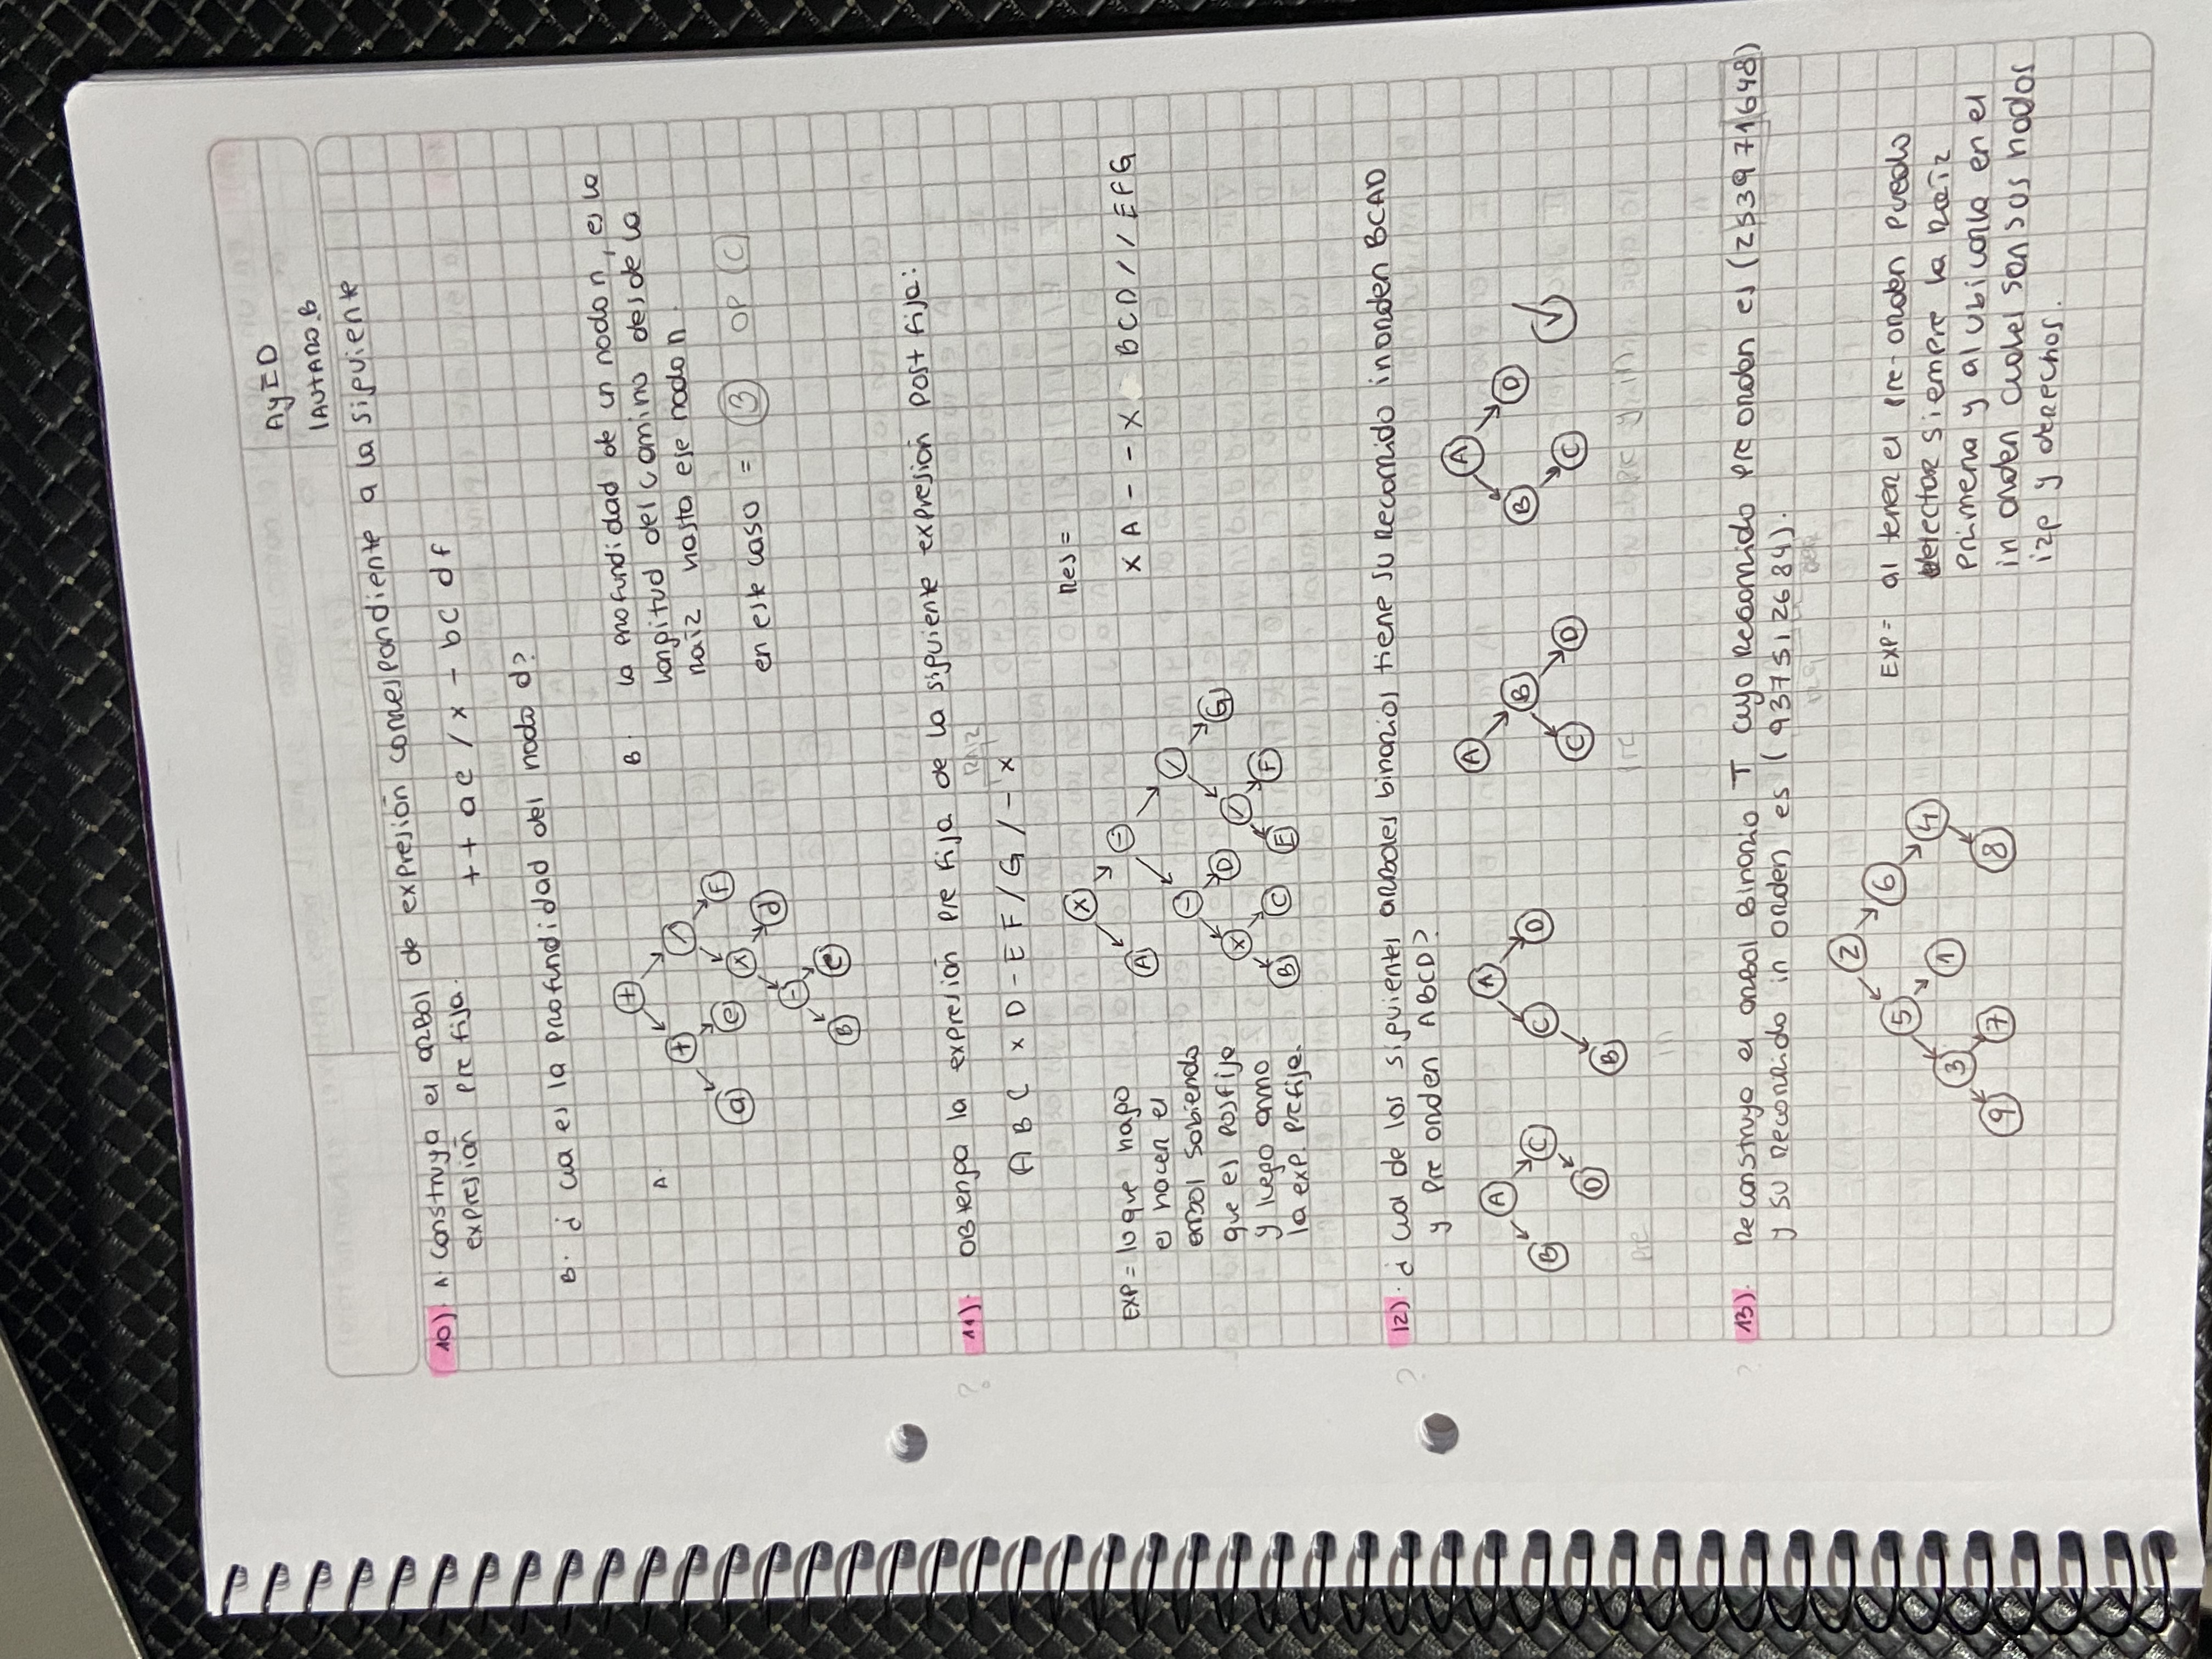 AyED
LAUTARO.B
10). A. construya el arbol de expresión correspondiente a la siguiente
expresión prefija.
+ + a e / x - b c d f
B. ¿ cua es la profundidad del nodo d?
A.
+
+ /
a e x F
- d
B c
B. la profundidad de un nodo n, es la
longitud del camino desde la
raiz hasta ese nodo n.
en este caso = 3 OP C
11). Obtenga la expresión prefija de la siguiente expresión postfija:
RAIZ
A B C x D - E F / G / - x
res =
x A - - x B C D / / E F G
EXP = lo que hago
es hacer el
arbol sabiendo
que es posfija
y luego armo
la exp. prefija.
x
A -
- /
x D / G
B C E F
12). ¿ cual de los siguientes arboles binarios tiene su recorrido inorden BCAD
y pre orden ABCD?
A
B C
D
A
C D
B
A
B
C D
A
B D
C
pre
in
pre
pre y in
13). Reconstruya el arbol Binario T cuyo recorrido pre orden es (2 5 3 9 7 1 6 4 8)
y su recorrido in orden es ( 9 3 7 5 1 2 6 8 4).
izq der
2
5 6
3 1 4
9 7 8
EXP = al tener el pre-orden puedo
detectar siempre la raiz
primera y al ubicarla en el
in orden cuales son sus nodos
izq y derechos.